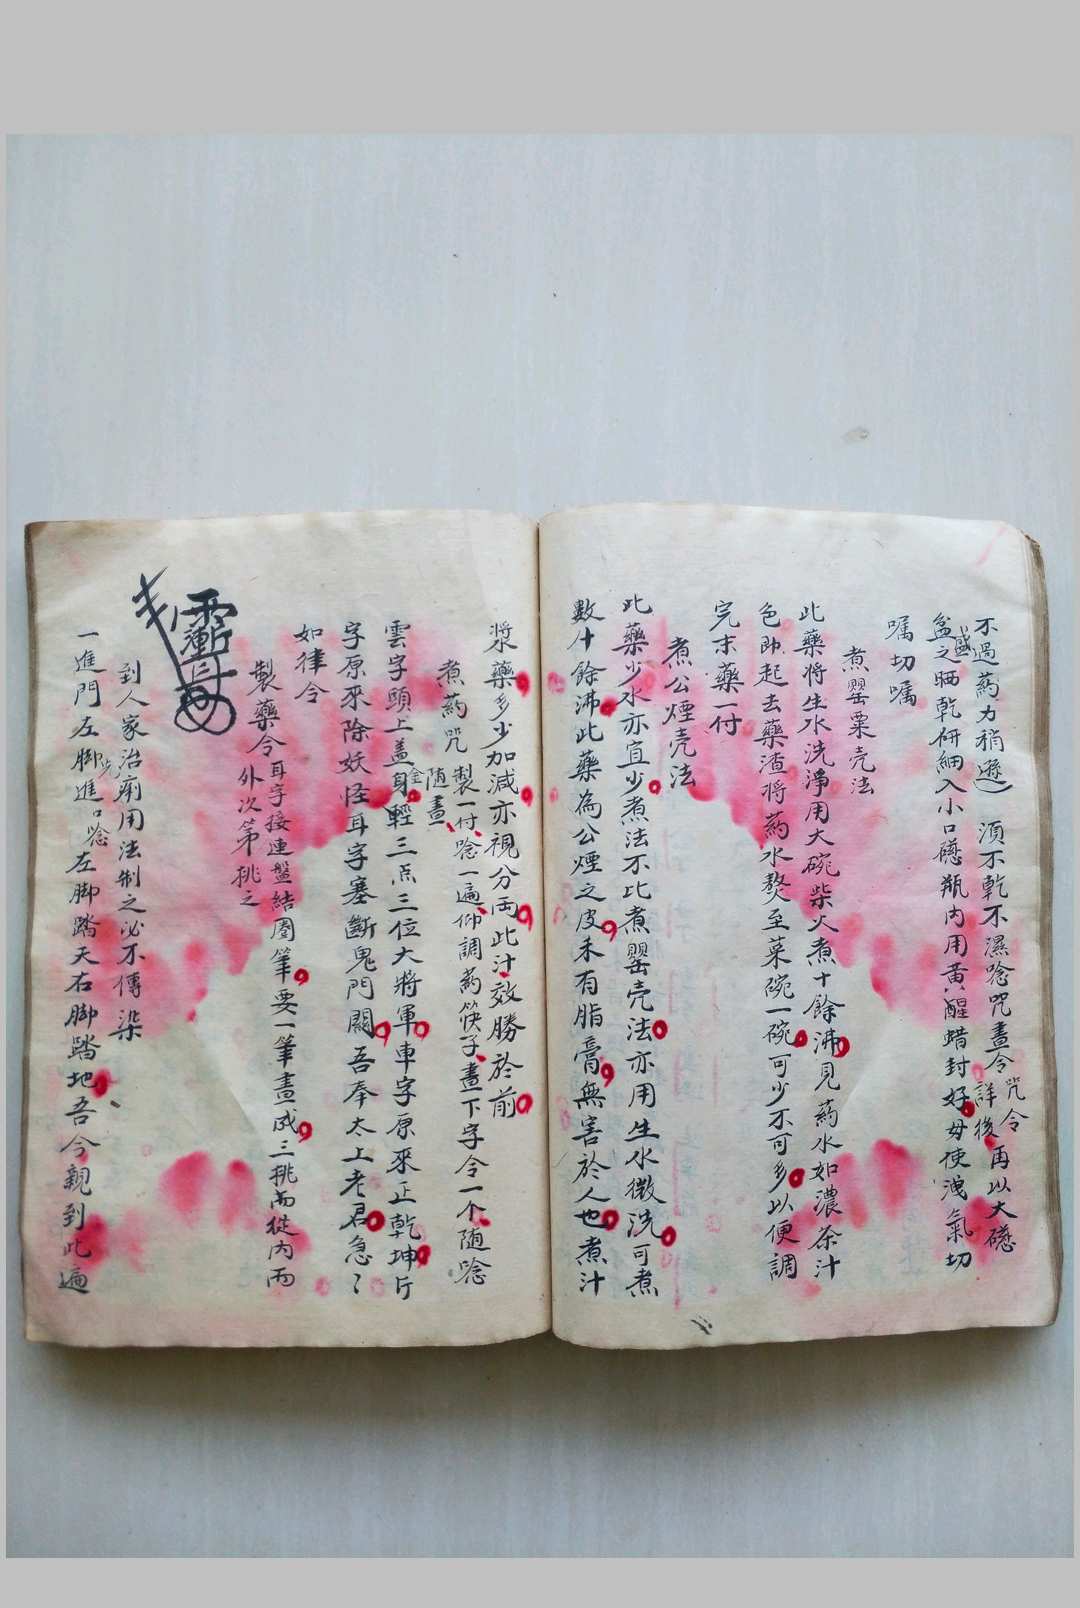 不過葯力稍遜）須不乾不濕唸咒畫令咒令詳後再以大磁
盆盛之晒乾研細入小口磁瓶内用黃醒蜡封好毋使洩氣切
嘱切嘱
煮罌粟壳法
此藥將生水洗淨用大碗柴火煮十餘沸見葯水如濃茶汁
色即起去藥渣將葯水熬至菜碗一碗可少不可多以便調
完末藥一付
煮公煙壳法
此藥少水亦宜少煮法不比煮罌壳法亦用生水微洗可煮
數十餘沸此藥為公煙之皮未有脂膏無害於人也煮汁
漿藥多少加減亦視分両此汁效勝於前
煮葯咒 製一付唸一遍仰調葯筷子畫下字令一个随唸
随畫
雲字頭上盖身輕三点三位大將軍車字原來正乾坤斤
字原來除妖怪耳字塞斷鬼門關吾奉太上老君急〻
如律令
製藥令 耳字接連盤結圈筆要一筆畫成三挑而從内而
外次第挑之
到人家治病用法制之必不傳染
一進門左脚先進口唸左脚踏天右脚踏地吾今親到此遍